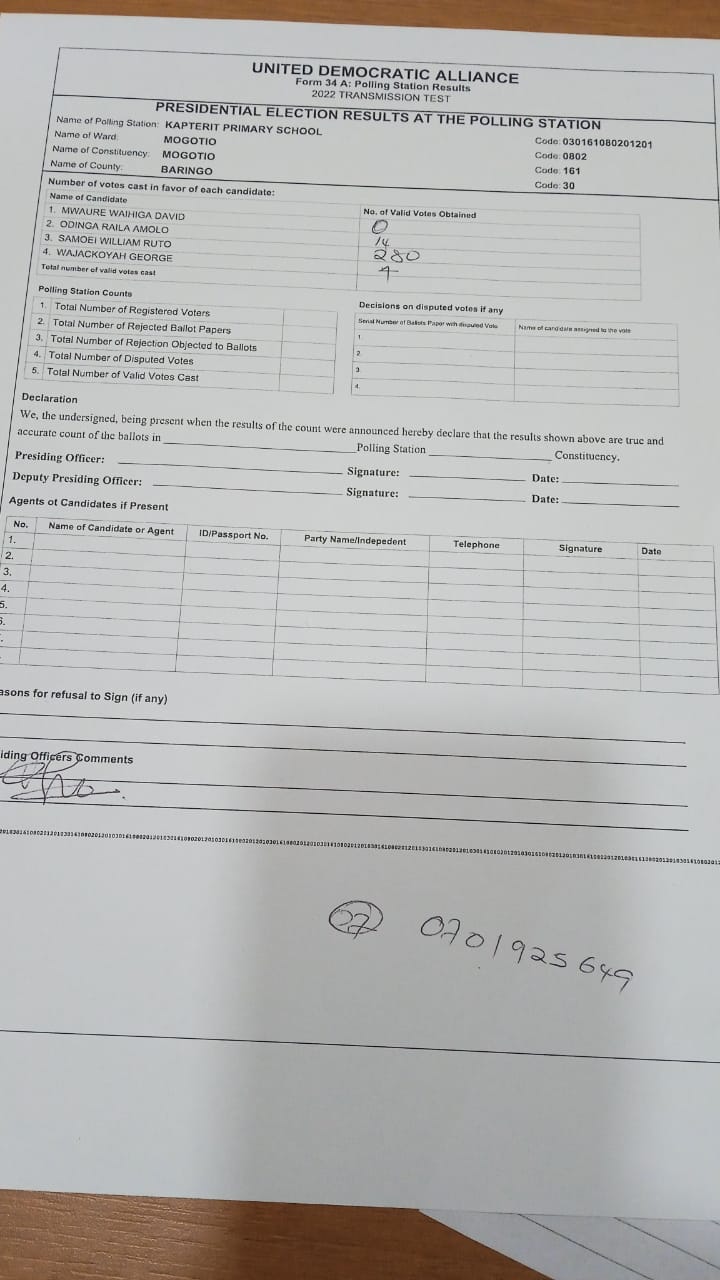 UNITED DEMOCRATIC ALLIANCE
Form 34 A: Polling Station Results
2022 TRANSMISSION TEST
PRESIDENTIAL ELECTION RESULTS AT THE POLLING STATION
Name of Polling Station: KAPTERIT PRIMARY SCHOOL Code: 030161080201201
Name of Ward: MOGOTIO Code: 0802
Name of Constituency: MOGOTIO Code: 161
Name of County: BARINGO Code: 30
Number of votes cast in favor of each candidate:
Name of Candidate No. of Valid Votes Obtained
1. MWAURE WAIHIGA DAVID 0
2. ODINGA RAILA AMOLO 14
3. SAMOEI WILLIAM RUTO 280
4. WAJACKOYAH GEORGE
Total number of valid votes cast
Polling Station Counts
1. Total Number of Registered Voters
2. Total Number of Rejected Ballot Papers
3. Total Number of Rejection Objected to Ballots
4. Total Number of Disputed Votes
5. Total Number of Valid Votes Cast
Decisions on disputed votes if any
Serial Number of Ballots Paper with disputed Vote Name of candidate assigned to the vote
1.
2.
3.
4.
Declaration
We, the undersigned, being present when the results of the count were announced hereby declare that the results shown above are true and
accurate count of the ballots in Polling Station Constituency.
Presiding Officer: Signature: Date:
Deputy Presiding Officer: Signature: Date:
Agents ot Candidates if Present
No. Name of Candidate or Agent ID/Passport No. Party Name/Indepedent Telephone Signature Date
1.
2.
3.
4.
5.
asons for refusal to Sign (if any)
iding Officers Comments
07 0701925649